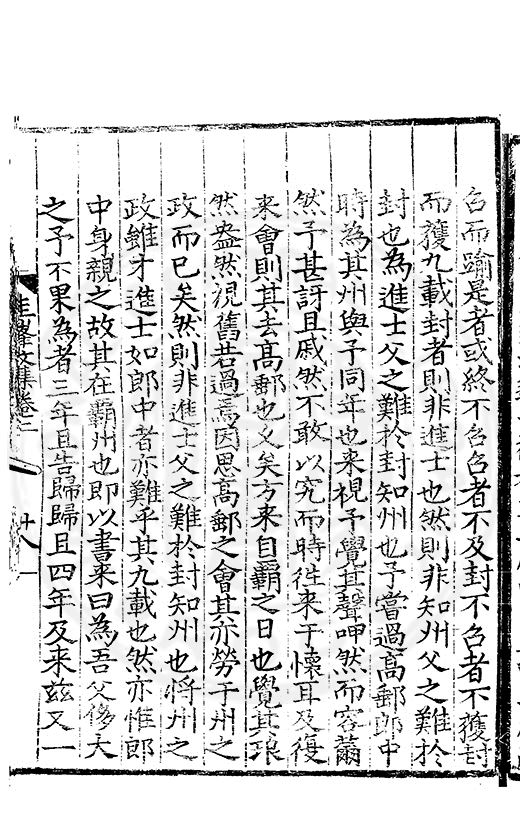 名而踰是者或終不名名者不及封不名者不獲封
而獲九載封者則非進士也然則非知州父之難於
封也為進士父之難於封知州也予嘗過高郵郎中
時為其州與予同年也来視予覺其聲呷然而容薾
然予甚訝且戚然不敢以究而時徃来于懷耳及復
来會則其去高郵也乆矣方来自霸之日也覺其琅
然盎然視舊若過焉因思高郵之會其亦勞于州之
政而已矣然則非進士父之難於封知州也将州之
政雖才進士如郎中者亦難乎其九載也然亦惟郎
中身親之故其在霸州也即以書来曰為吾父侈大
之予不果為者三年且告歸歸且四年及来兹又一
圭峯文集卷二
十八